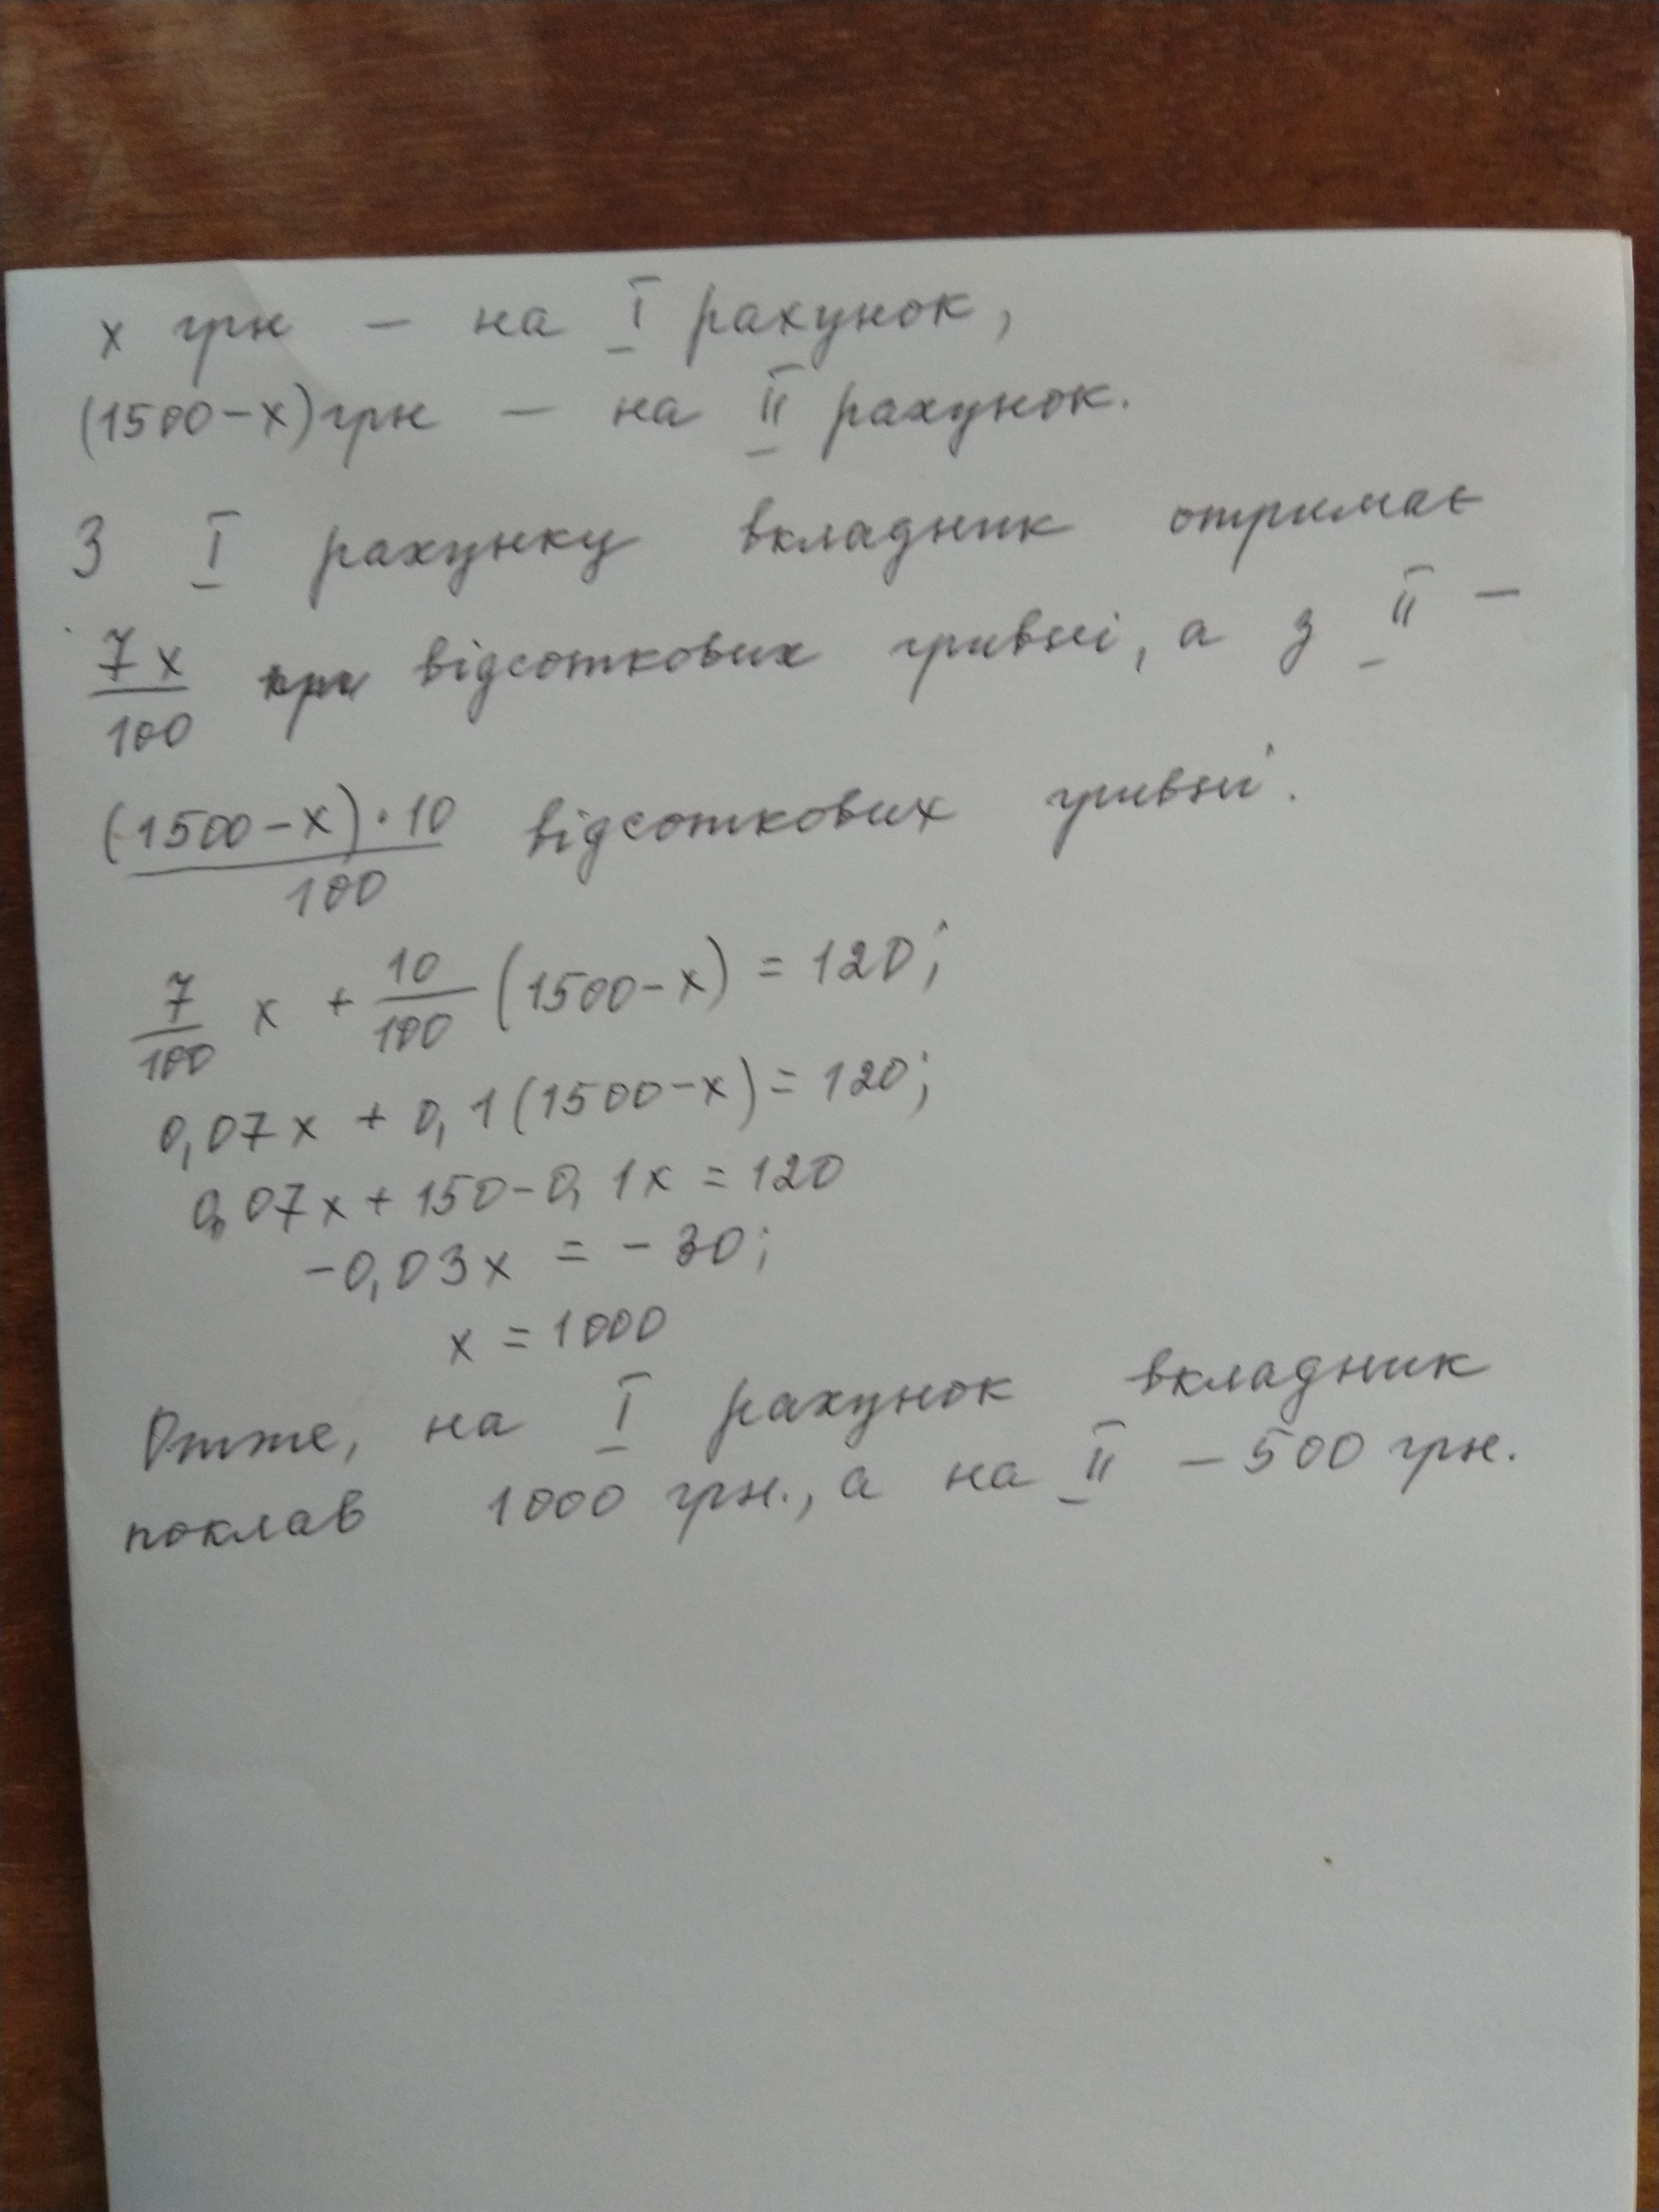 x грн – на I рахунок,
(1500-x) грн – на II рахунок.
З I рахунку вкладник отримає
7x/100 відсоткових гривні, а з II –
(1500-x)·10/100 відсоткових гривні.
7/100 x + 10/100 (1500-x) = 120;
0,07x + 0,1(1500-x) = 120;
0,07x + 150 - 0,1x = 120
-0,03x = -30;
x = 1000
Отже, на I рахунок вкладник
поклав 1000 грн., а на II – 500 грн.